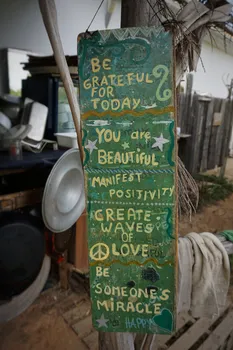 BE
GRATEFUL
FOR
TODAY
YOU are
BEAUTIFUL
MANIFEST
POSITIVITY
CREATE
WAVES
OF
LOVE
BE
SOMEONE'S
MIRACLE
HAPPY